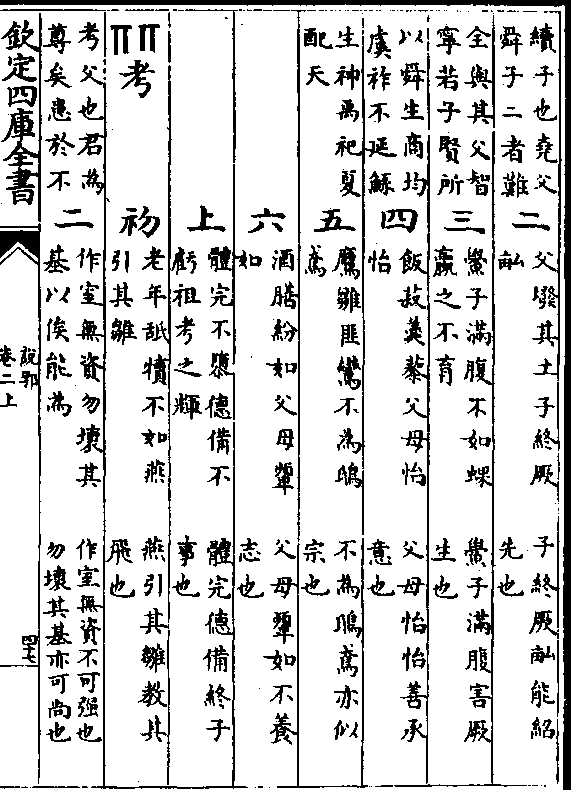 續子也堯父
舜子二者難
全與其父智
寧若子賢所
以舜生商均
虞祚不延鯀
生神禹祀夏
配天
二
父墢其土子終厥
畝
子終厥畝能紹
先也
三
鱟子滿腹不如蜾
蠃之不育
鱟子滿腹害厥
生也
四
飯菽羹藜父母怡
怡
父母怡怡善承
意也
五
鷹雛匪鸞不為鴟
鳶
不為鴟鳶亦似
宗也
六
酒膳紛如父母顰
如
父母顰如不養
志也
上
體完不隳德備不
虧祖考之輝
體完德備終子
事也
考
考父也君為
尊矣患於不
初
老年舐犢不如燕
引其雛
燕引其雛教其
飛也
二
作室無資勿壞其
基以俟能為
作室無資不可强也
勿壞其基亦可尚也
欽定四庫全書
說郛
卷二上
四七